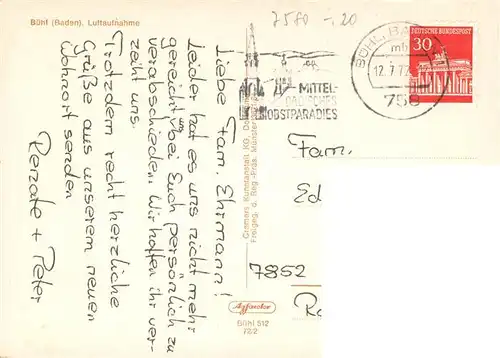 Bühl (Baden), Luftaufnahme
7580 -,20
Liebe Fam. Ehrmann!
Leider hat es uns nicht mehr
gereicht uns bei Euch persönlich zu
verabschieden. Wir hoffen ihr ver-
zeiht uns.
Trotzdem recht herzliche
Grüße aus unserem neuen
Wohnort senden
Renate + Peter
MITTEL-
BADISCHES
OBSTPARADIES
BÜHL, BA
mb
12.7.77
758
DEUTSCHE BUNDESPOST
30
Cramers Kunstanstalt KG, Do
Freigeg. d. Reg.-Präs. Münster
Agfacolor
Bühl 512
Fam.
Ed
7852